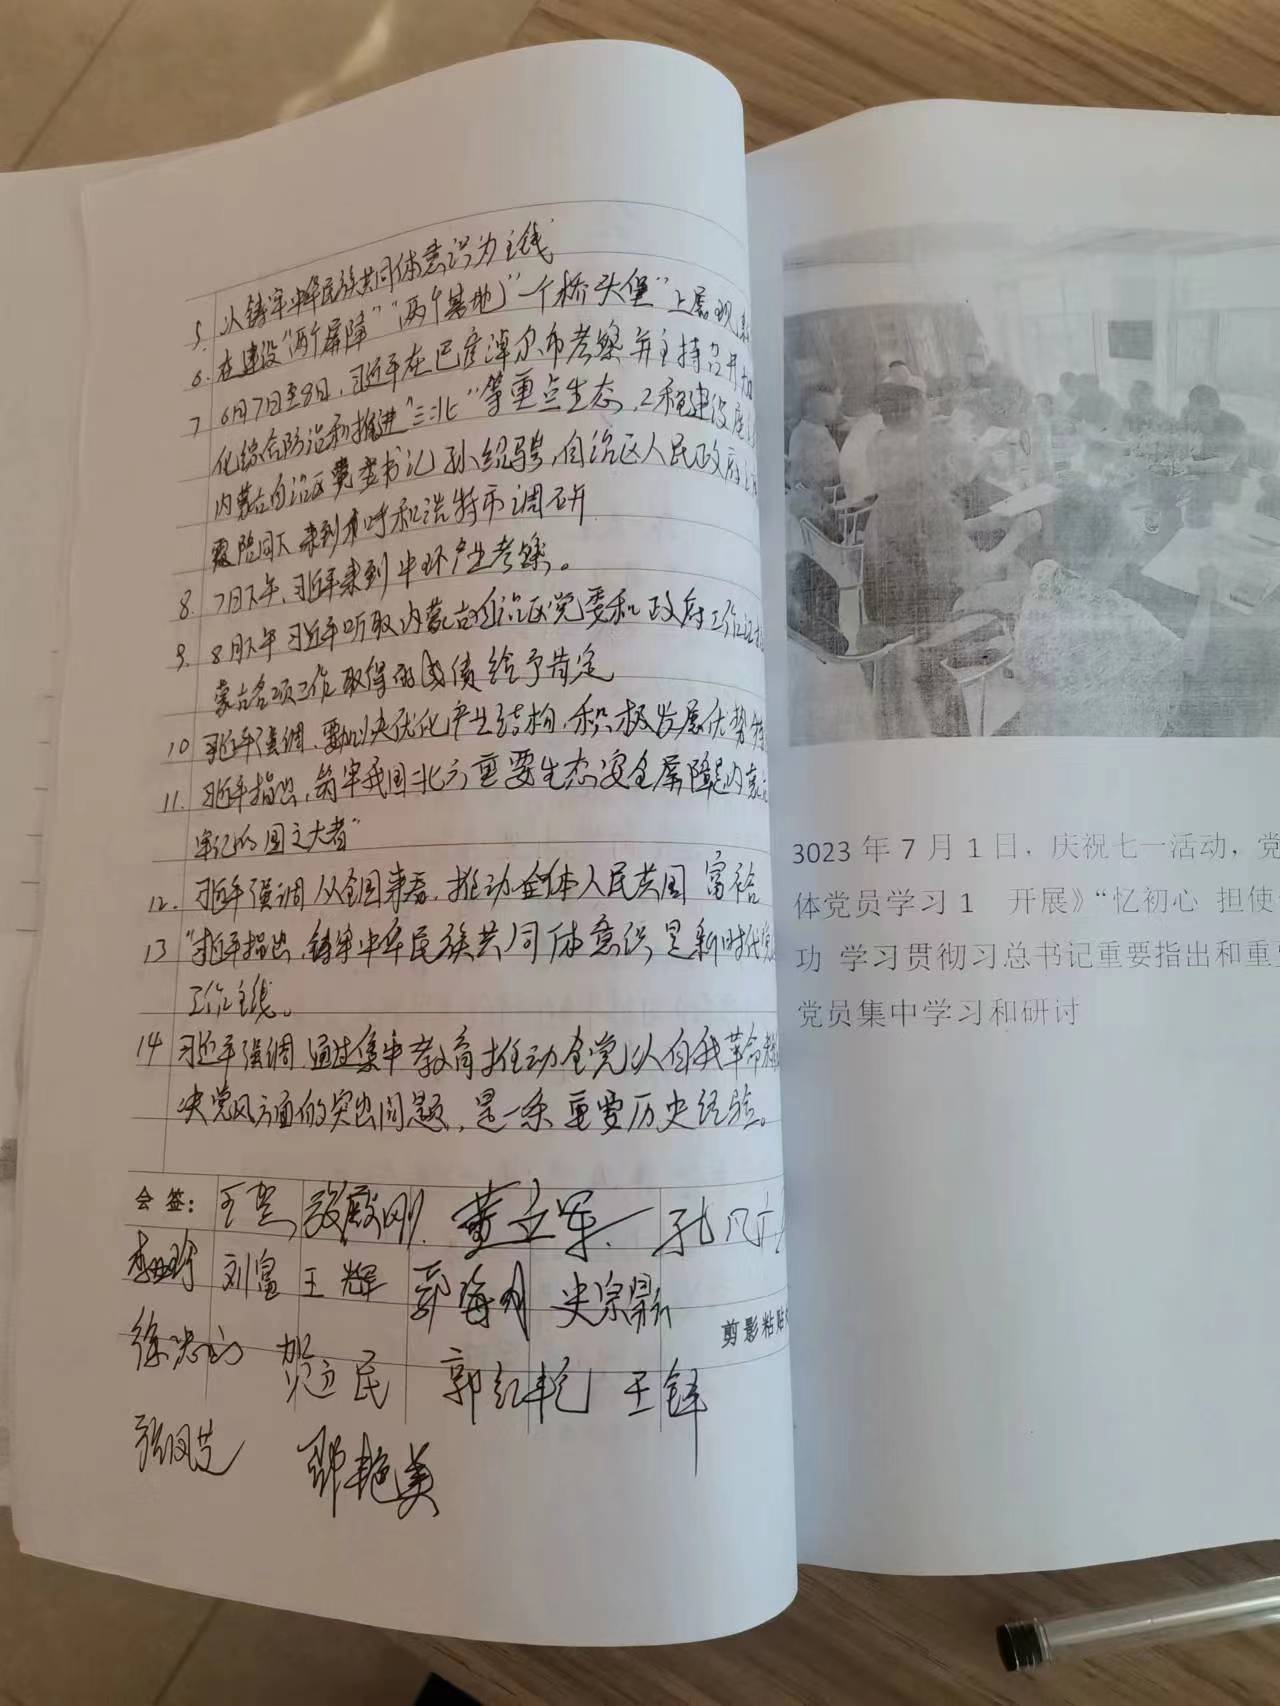 5. 以铸牢中华民族共同体意识为主线
6. 在建设"两个屏障""两个基地""一个桥头堡"上展现
7 6月7日至8日,习近平在巴彦淖尔市考察并主持召开加
化综合防治和推进"三北"等重点生态工程建设座
内蒙古自治区党委书记孙绍骋,自治区人民政府
陪同下来到呼和浩特市调研
8. 7日下午,习近平来到中环产业考察。
9. 8日下午习近平听取内蒙古自治区党委和政府工作
蒙古各项工作取得的成绩给予肯定
10 习近平强调,要加快优化产业结构,积极发展优势
11. 习近平指出,筑牢我国北方重要生态安全屏障是内蒙
牢记的"国之大者"
12. 习近平强调从全国来看,推动全体人民共同富裕
13 习近平指出,铸牢中华民族共同体意识是新时代党
工作主线。
14 习近平强调,通过集中教育推动全党以自我革命
决党风方面的突出问题,是一条重要历史经验。
会签: 董立军 孔凡
刘富 王辉 郭海 史宗
剪影粘贴
徐志 贺建民 郭红艳 王铎
张凤芝 邢艳美
3023 年 7 月 1 日，庆祝七一活动，党
体党员学习 1 开展》“忆初心 担使
功 学习贯彻习总书记重要指出和重
党员集中学习和研讨